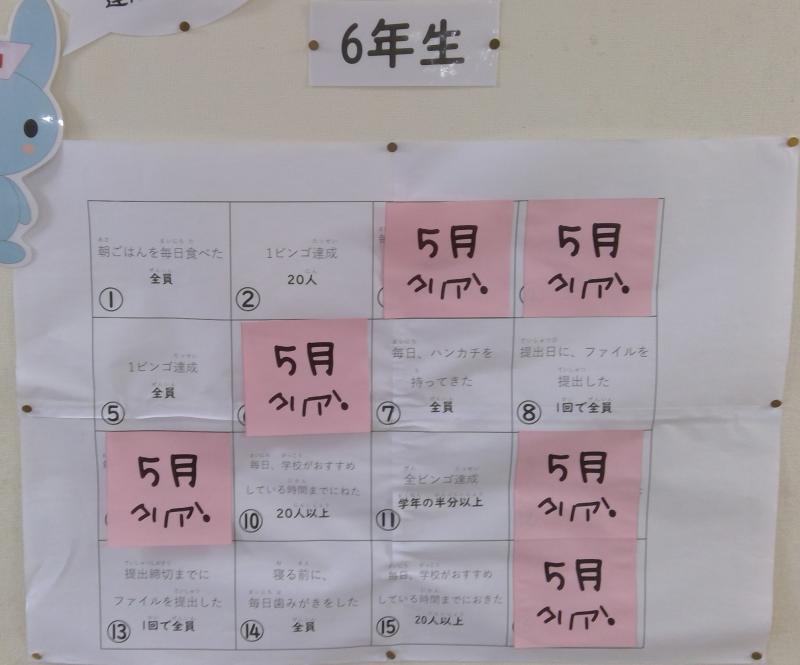 6年生
朝ごはんを毎日食べた
全員
①
1ビンゴ達成
20人
②
5月
クリア!
5月
クリア!
1ビンゴ達成
全員
⑤
5月
クリア!
毎日、ハンカチを
持ってきた
全員
⑦
提出日に、ファイルを
提出した
1回で全員
⑧
5月
クリア!
毎日、学校がおすすめ
している時間までにねた
20人以上
⑩
全ビンゴ達成
学年の半分以上
⑪
5月
クリア!
提出締切までに
ファイルを提出した
1回で全員
⑬
寝る前に、
毎日歯みがきをした
全員
⑭
毎日、学校がおすすめ
している時間までにおきた
20人以上
⑮
5月
クリア!